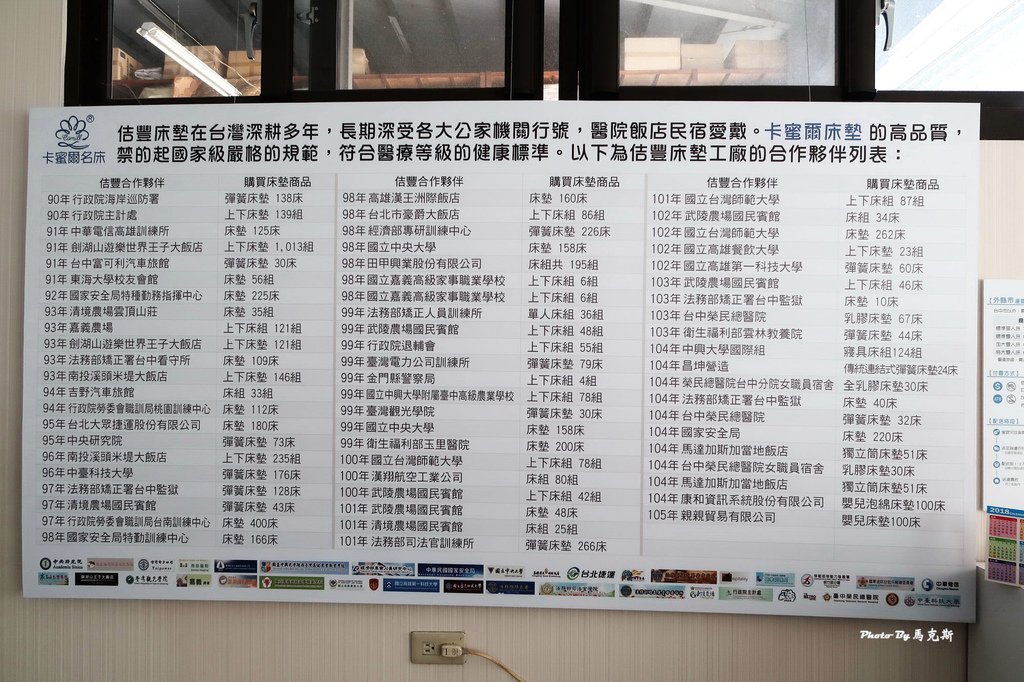 卡蜜爾名床
佶豐床墊在台灣深耕多年，長期深受各大公家機關行號，醫院飯店民宿愛戴。卡蜜爾床墊 的高品質，
禁的起國家級嚴格的規範，符合醫療等級的健康標準。以下為佶豐床墊工廠的合作夥伴列表：
佶豐合作夥伴 購買床墊商品
90年行政院海岸巡防署 彈簧床墊 138床
90年行政院主計處 上下床墊 139組
91年中華電信高雄訓練所 床墊 125床
91年劍湖山遊樂世界王子大飯店 上下床墊 1,013組
91年台中富可利汽車旅館 彈簧床墊 30床
91年東海大學校友會館 床墊 56組
92年國家安全局特種勤務指揮中心 床墊 225床
93年清境農場雲頂山莊 床墊 35組
93年嘉義農場 上下床組 121組
93年劍湖山遊樂世界王子大飯店 上下床墊 121組
93年法務部矯正署台中看守所 床墊 109床
93年南投溪頭米堤大飯店 上下床墊 146組
94年吉野汽車旅館 床組 33組
94年行政院勞委會職訓局桃園訓練中心 床墊 112床
95年台北大眾捷運股份有限公司 床墊 180床
95年中央研究院 彈簧床墊 73床
96年南投溪頭米堤大飯店 上下床墊 235組
96年中臺科技大學 彈簧床墊 176床
97年法務部矯正署台中監獄 彈簧床墊 128床
97年清境農場國民賓館 彈簧床墊 43床
97年行政院勞委會職訓局台南訓練中心 床墊 400床
98年國家安全局特勤訓練中心 床墊 166床
佶豐合作夥伴 購買床墊商品
98年高雄漢王洲際飯店 床墊 160床
98年台北市豪爵大飯店 上下床組 86組
98年經濟部專研訓練中心 彈簧床墊 226床
98年國立中央大學 床墊 158床
98年田甲興業股份有限公司 床組共 195組
98年國立嘉義高級家事職業學校 上下床組 6組
98年國立嘉義高級家事職業學校 上下床組 6組
99年法務部矯正人員訓練所 單人床組 36組
99年武陵農場國民賓館 上下床組 48組
99年行政院退輔會 上下床組 55組
99年臺灣電力公司訓練所 彈簧床墊 79床
99年金門縣警察局 上下床組 4組
99年國立中興大學附屬臺中高級農業學校 上下床組 78組
99年臺灣觀光學院 彈簧床墊 30床
99年國立中央大學 床墊 158床
99年衛生福利部玉里醫院 床墊 200床
100年國立台灣師範大學 上下床組 78組
100年漢翔航空工業公司 床組 80組
100年武陵農場國民賓館 上下床組 42組
101年武陵農場國民賓館 床墊 48床
101年清境農場國民賓館 床組 25組
101年法務部司法官訓練所 彈簧床墊 266床
佶豐合作夥伴 購買床墊商品
101年國立台灣師範大學 上下床組 87組
102年武陵農場國民賓館 床組 34床
102年國立台灣師範大學 床墊 262床
102年國立高雄餐飲大學 上下床墊 23組
102年國立高雄第一科技大學 彈簧床墊 60床
103年武陵農場國民賓館 上下床組 46床
103年法務部矯正署台中監獄 床墊 10床
103年台中榮民總醫院 乳膠床墊 67床
103年衛生福利部雲林教養院 彈簧床墊 44床
104年中興大學國際組 寢具床組124組
104年昌坤營造 傳統連結式彈簧床墊24床
104年榮民總醫院台中分院女職員宿舍 全乳膠床墊30床
104年法務部矯正署台中監獄 床墊 40床
104年台中榮民總醫院 彈簧床墊 32床
104年國家安全局 床墊 220床
104年馬達加斯加當地飯店 獨立筒床墊51床
104年台中榮民總醫院女職員宿舍 乳膠床墊30床
104年馬達加斯加當地飯店 獨立筒床墊51床
104年康和資訊系統股份有限公司 嬰兒泡綿床墊100床
105年親親貿易有限公司 嬰兒床墊100床
中央研究院
台北捷運
中華電信
臺灣觀光學院
臺中榮民總醫院
中臺科技大學
2018
Photo By 馬克斯